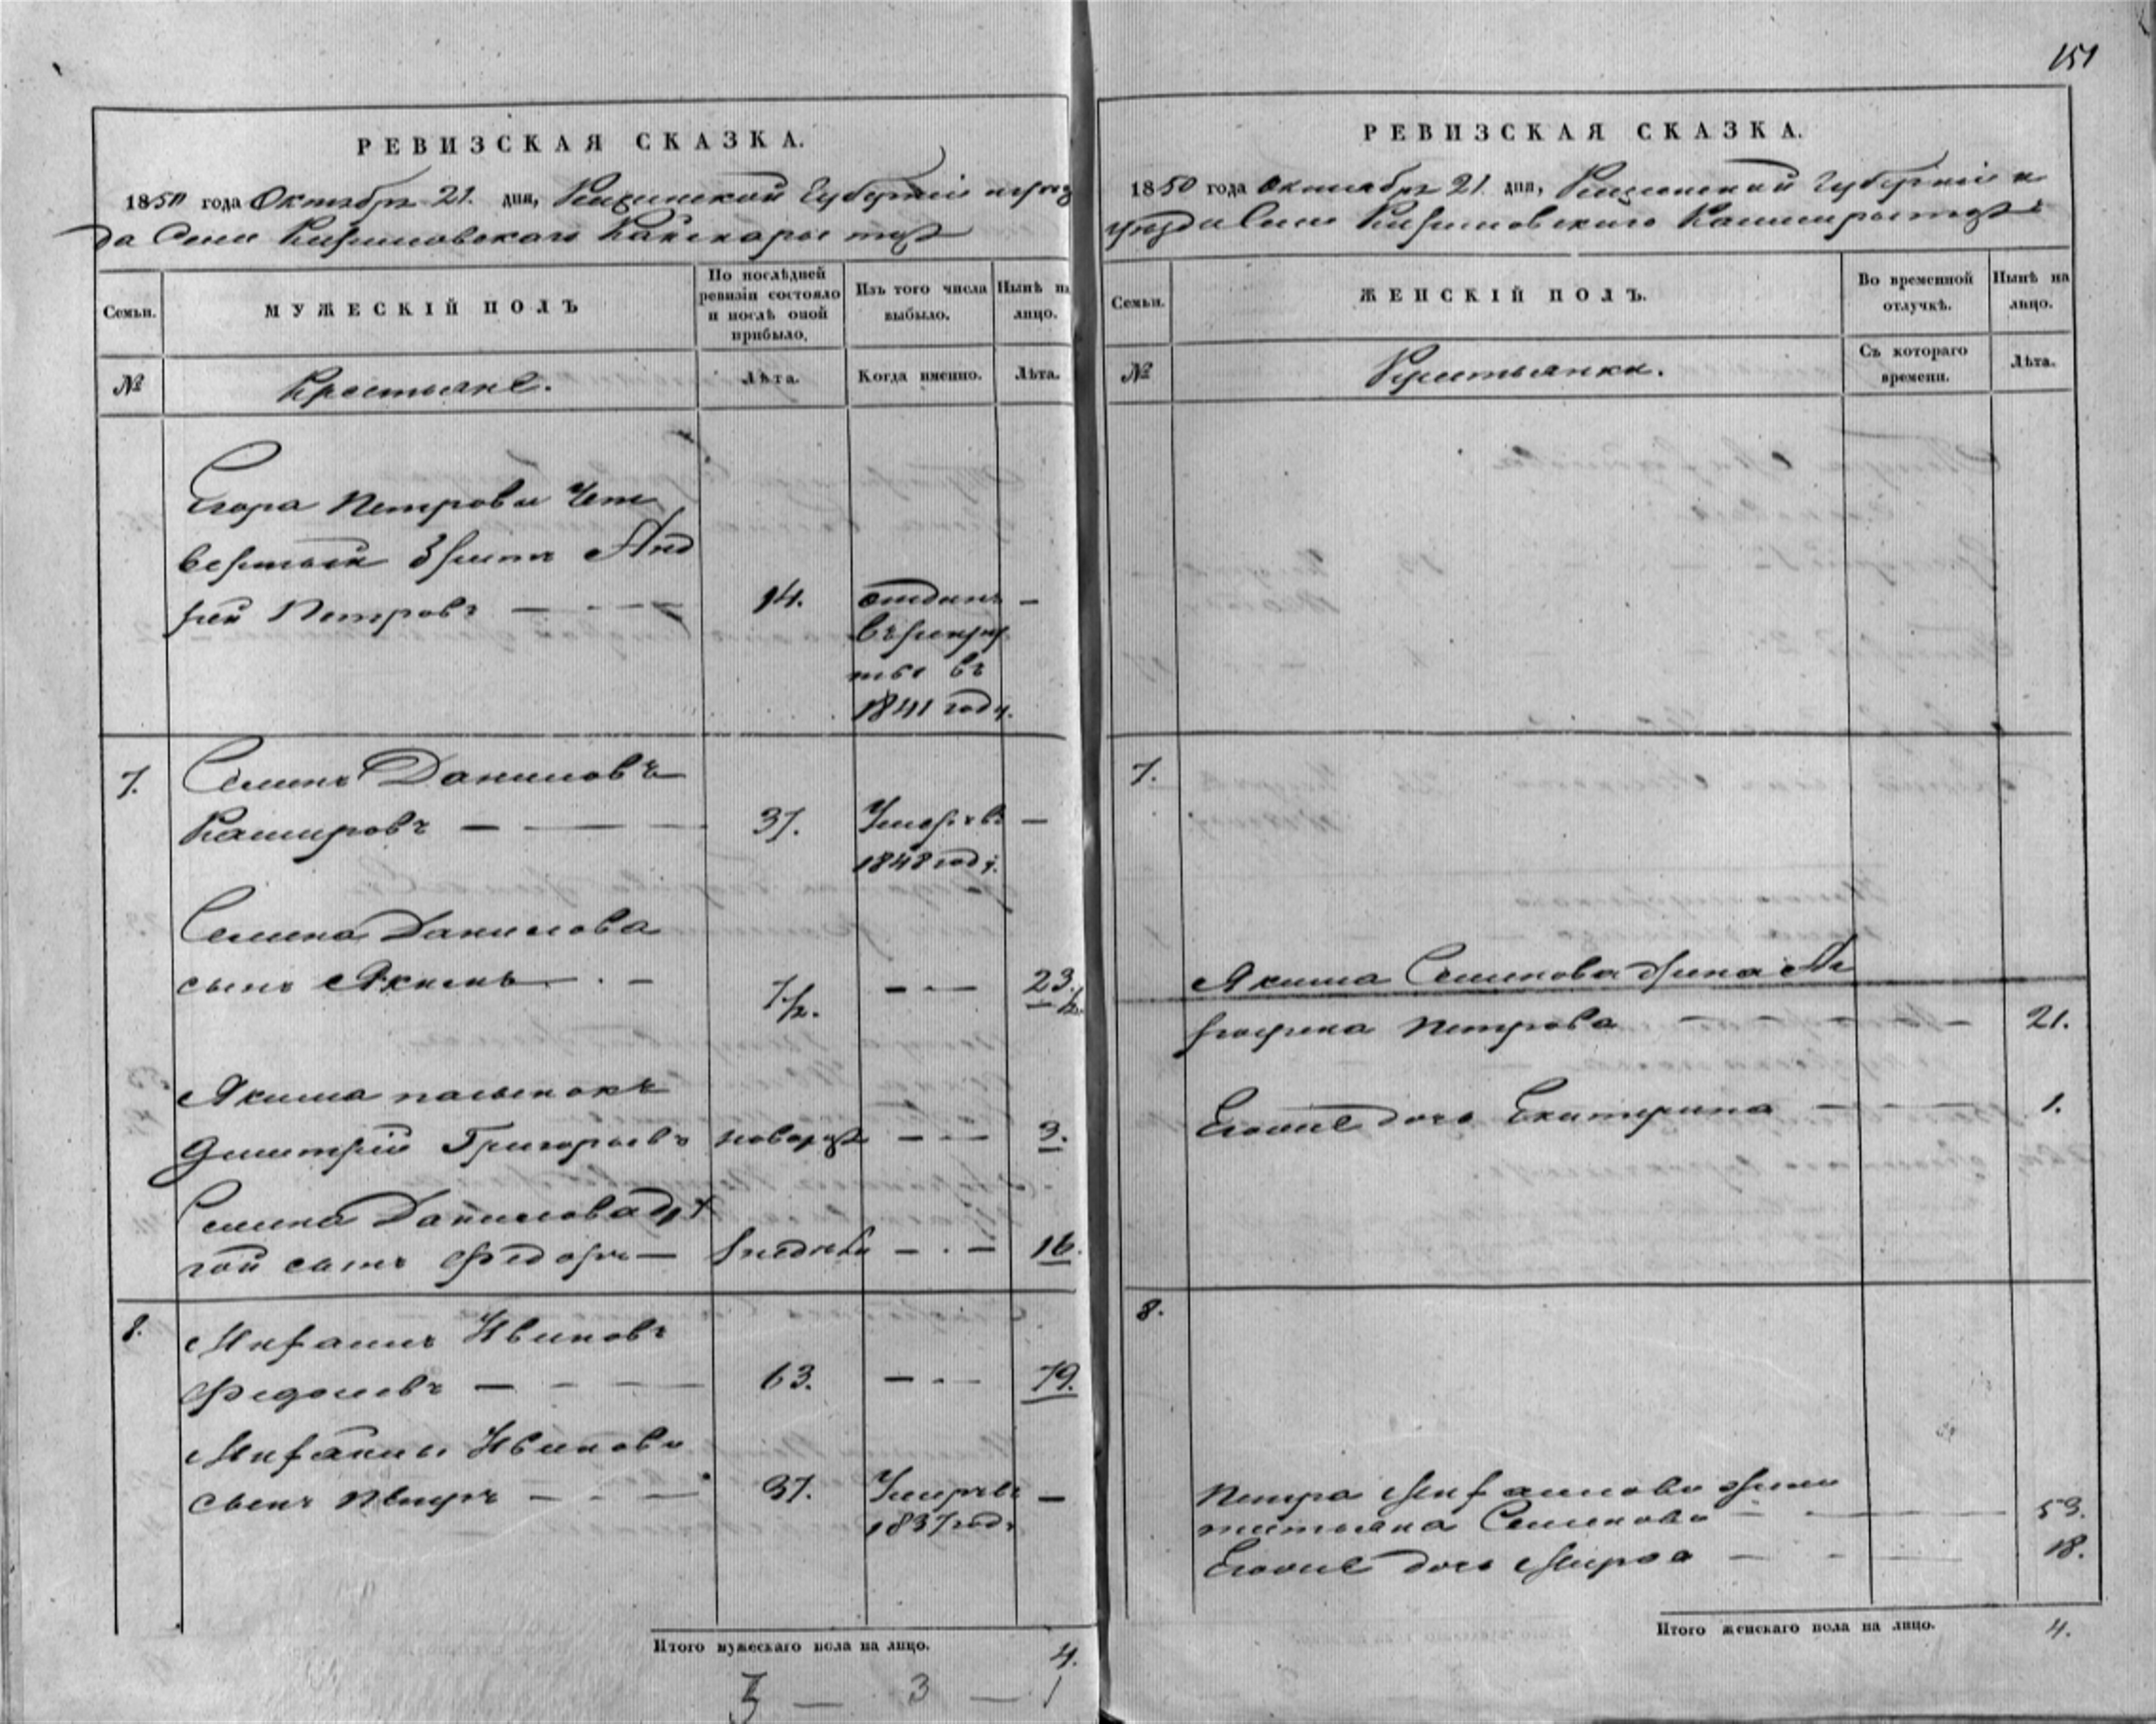 151
РЕВИЗСКАЯ СКАЗКА.
1850 года Октябр 21. дня, Губернии
да Села
Семьи. МУЖЕСКІЙ ПОЛЪ По послѣдней ревизіи состояло и послѣ оной прибыло. Изъ того числа выбыло. Нынѣ на лицо.
№ Крестьяне. Лѣта. Когда именно. Лѣта.
Егора Петрова Чет
вертый братъ Анд
рей Петровъ — - — 14. отданъ —
въ рекру
ты въ
1841 году.
7. Семенъ Даниловъ
Кашировъ — — — 37. Умеръ въ —
1848 году.
Семена Данилова
сынъ Якимъ — . — 7½. — - — 23.½.
Якима пасынокъ
Дмитрій Григорьевъ новорож — - — 3.
Семена Данилова дру
гой сынъ Федоръ — — . — 16.
8. Ивановъ
— - - — 63. — - — 79.
Иванова
сынъ Петръ — - — 37. Умеръ въ —
1837 году
Итого мужескаго пола на лицо. 4.
3 — 3 — 1
РЕВИЗСКАЯ СКАЗКА.
1850 года Октября 21. дня, Губерніи
уезда Села
Семьи. ЖЕНСКІЙ ПОЛЪ. Во временной отлучкѣ. Нынѣ на лицо.
№ Крестьянки. Съ котораго времени. Лѣта.
7.
Якима Семенова жена Аг
рофена Петрова — — — — — 21.
Еговые дочь Екатерина — - — 1.
8.
Петра жена
татьяна Семенова — - — 53.
Еговые дочь Марфа — - — 18.
Итого женскаго пола на лицо. 4.